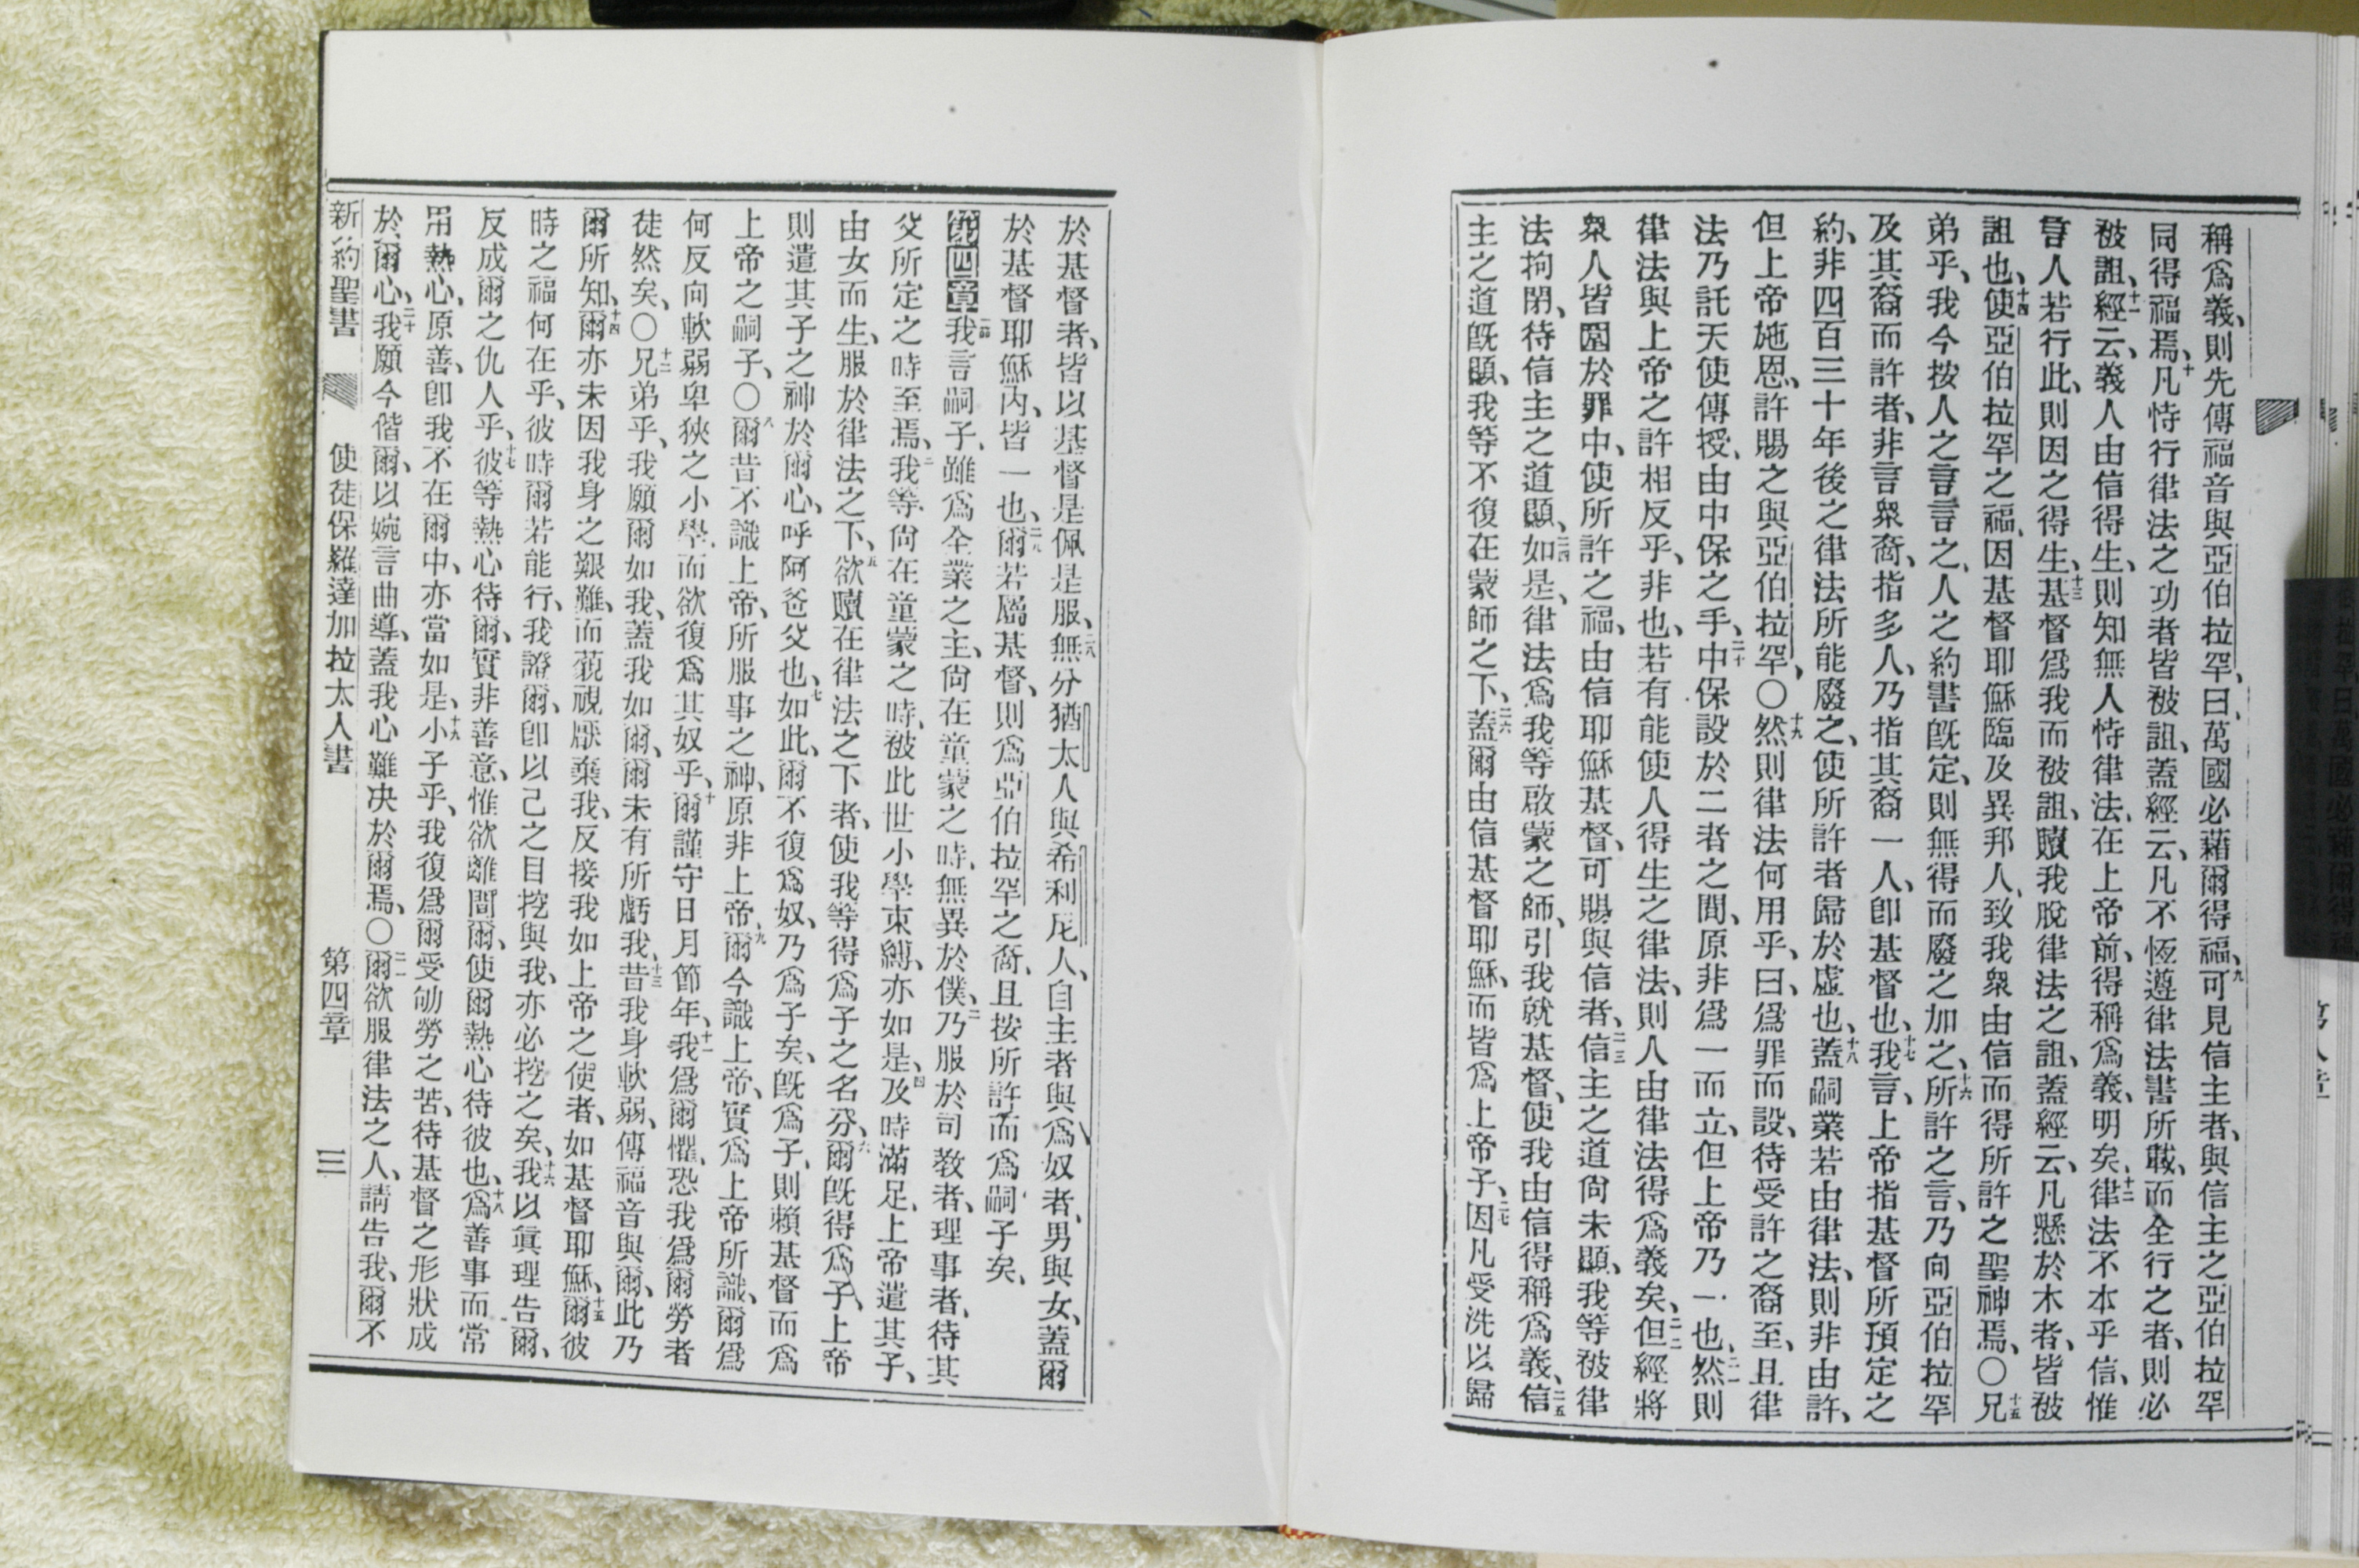 稱爲義、則先傳福音與亞伯拉罕、曰、萬國必藉爾得福、九可見信主者、與信主之亞伯拉罕
同得福焉、十凡恃行律法之功者皆被詛、蓋經云、凡不恆遵律法書所載、而全行之者、則必
被詛、十一經云、義人由信得生、則知無人恃律法、在上帝前、得稱爲義、明矣、十二律法不本乎信、惟
言人若行此、則因之得生、十三基督爲我而被詛、贖我脫律法之詛、蓋經云、凡懸於木者、皆被
詛也、十四使亞伯拉罕之福、因基督耶穌臨及異邦人、致我衆由信而得所許之聖神焉、〇十五兄
弟乎、我今按人之言言之、人之約書旣定、則無得而廢之加之、十六所許之言、乃向亞伯拉罕
及其裔而許者、非言衆裔、指多人、乃指其裔一人、卽基督也、十七我言、上帝指基督所預定之
約、非四百三十年後之律法所能廢之、使所許者歸於虛也、十八蓋嗣業若由律法、則非由許、
但上帝施恩、許賜之與亞伯拉罕、〇十九然則律法何用乎、曰、爲罪而設、待受許之裔至、且律
法乃託天使傳授、由中保之手、二十中保設於二者之間、原非爲一而立、但上帝乃一也、二一然則
律法與上帝之許相反乎、非也、若有能使人得生之律法、則人由律法得爲義矣、二二但經將
衆人皆圈於罪中、使所許之福、由信耶穌基督、可賜與信者、二三信主之道尙未顯、我等被律
法拘閉、待信主之道顯、二四如是、律法爲我等啟蒙之師、引我就基督、使我由信得稱爲義、二五信
主之道旣顯、我等不復在蒙師之下、二六蓋爾由信基督耶穌、而皆爲上帝子、二七因凡受洗以歸
於基督者、皆以基督是佩是服、二八無分猶太人與希利尼人、自主者與爲奴者、男與女、蓋爾
於基督耶穌內、皆一也、二九爾若屬基督、則爲亞伯拉罕之裔、且按所許而爲嗣子矣、
第四章一節我言嗣子、雖爲全業之主、尙在童蒙之時、無異於僕、二乃服於司敎者、理事者、待其
父所定之時至焉、三我等尙在童蒙之時、被此世小學束縛、亦如是、四及時滿足、上帝遣其子、
由女而生、服於律法之下、五欲贖在律法之下者、使我等得爲子之名分、六爾旣得爲子、上帝
則遣其子之神於爾心、呼阿爸父也、七如此、爾不復爲奴、乃爲子矣、旣爲子、則賴基督而爲
上帝之嗣子、〇八爾昔不識上帝、所服事之神、原非上帝、九爾今識上帝、實爲上帝所識、爾爲
何反向軟弱卑狹之小學、而欲復爲其奴乎、十爾謹守日月節年、十一我爲爾懼、恐我爲爾勞者
徒然矣、〇十二兄弟乎、我願爾如我、蓋我如爾、爾未有所虧我、十三昔我身軟弱、傳福音與爾、此乃
爾所知、十四爾亦未因我身之艱難、而藐視厭棄我、反接我如上帝之使者、如基督耶穌、十五爾彼
時之福何在乎、彼時爾若能行、我證爾、卽以己之目挖與我、亦必挖之矣、十六我以眞理告爾、
反成爾之仇人乎、十七彼等熱心待爾、實非善意、惟欲離間爾、使爾熱心待彼也、十八爲善事而常
用熱心、原善、卽我不在爾中、亦當如是、十九小子乎、我復爲爾受劬勞之苦、待基督之形狀成
於爾心、二十我願今偕爾、以婉言曲導、蓋我心難決於爾焉、〇二一爾欲服律法之人、請告我、爾不
新約聖書 使徒保羅達加拉太人書 第四章 三